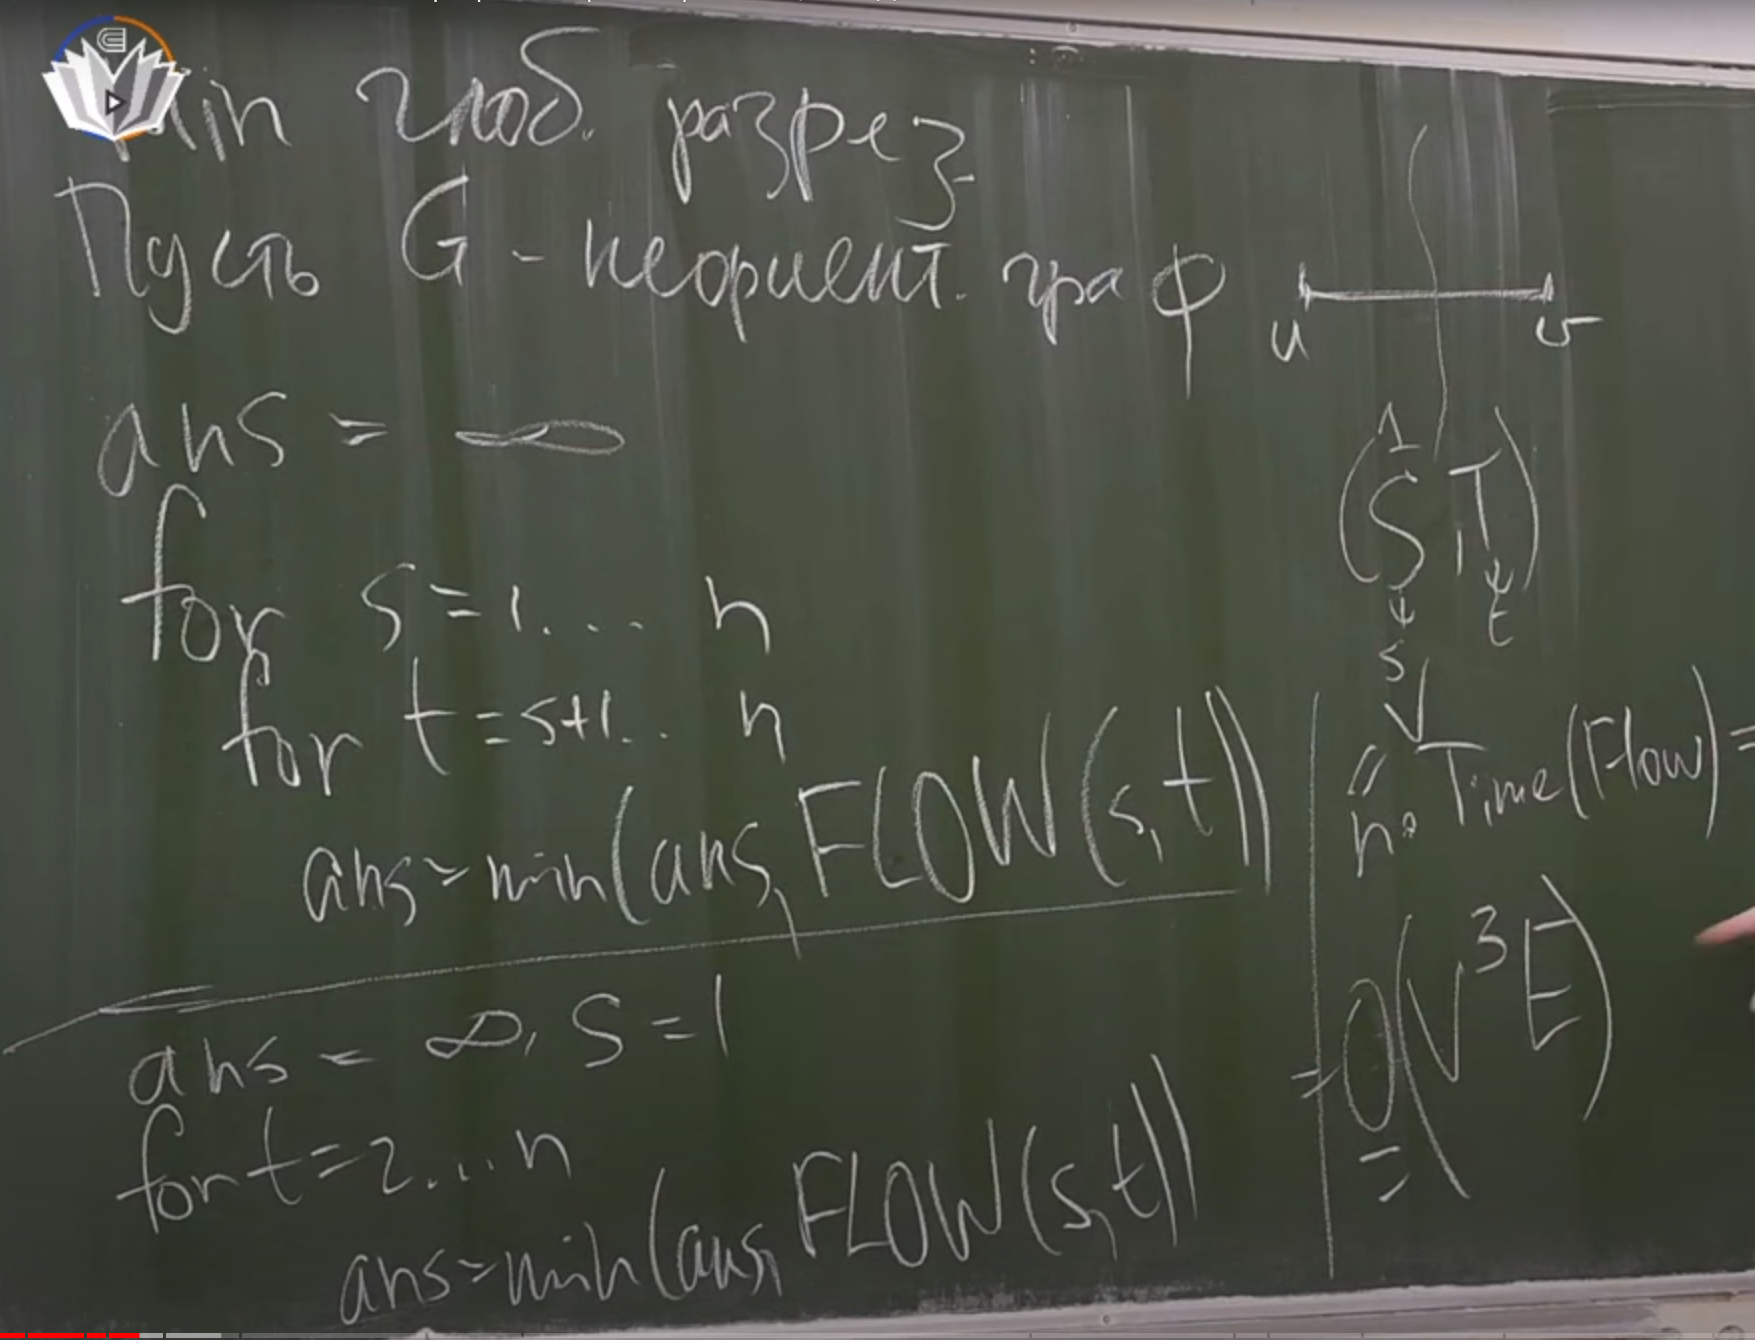 min глоб. разрез
Пусть G - неориент. граф
ans = ∞
for s=1... n
for t=s+1.. n
ans=min(ans, FLOW(s,t))
ans = ∞, S=1
for t=2...n
ans=min(ans, FLOW(s,t))
u v
1
(S,T)
s t
V
n · Time(Flow) =
= O(V³E)